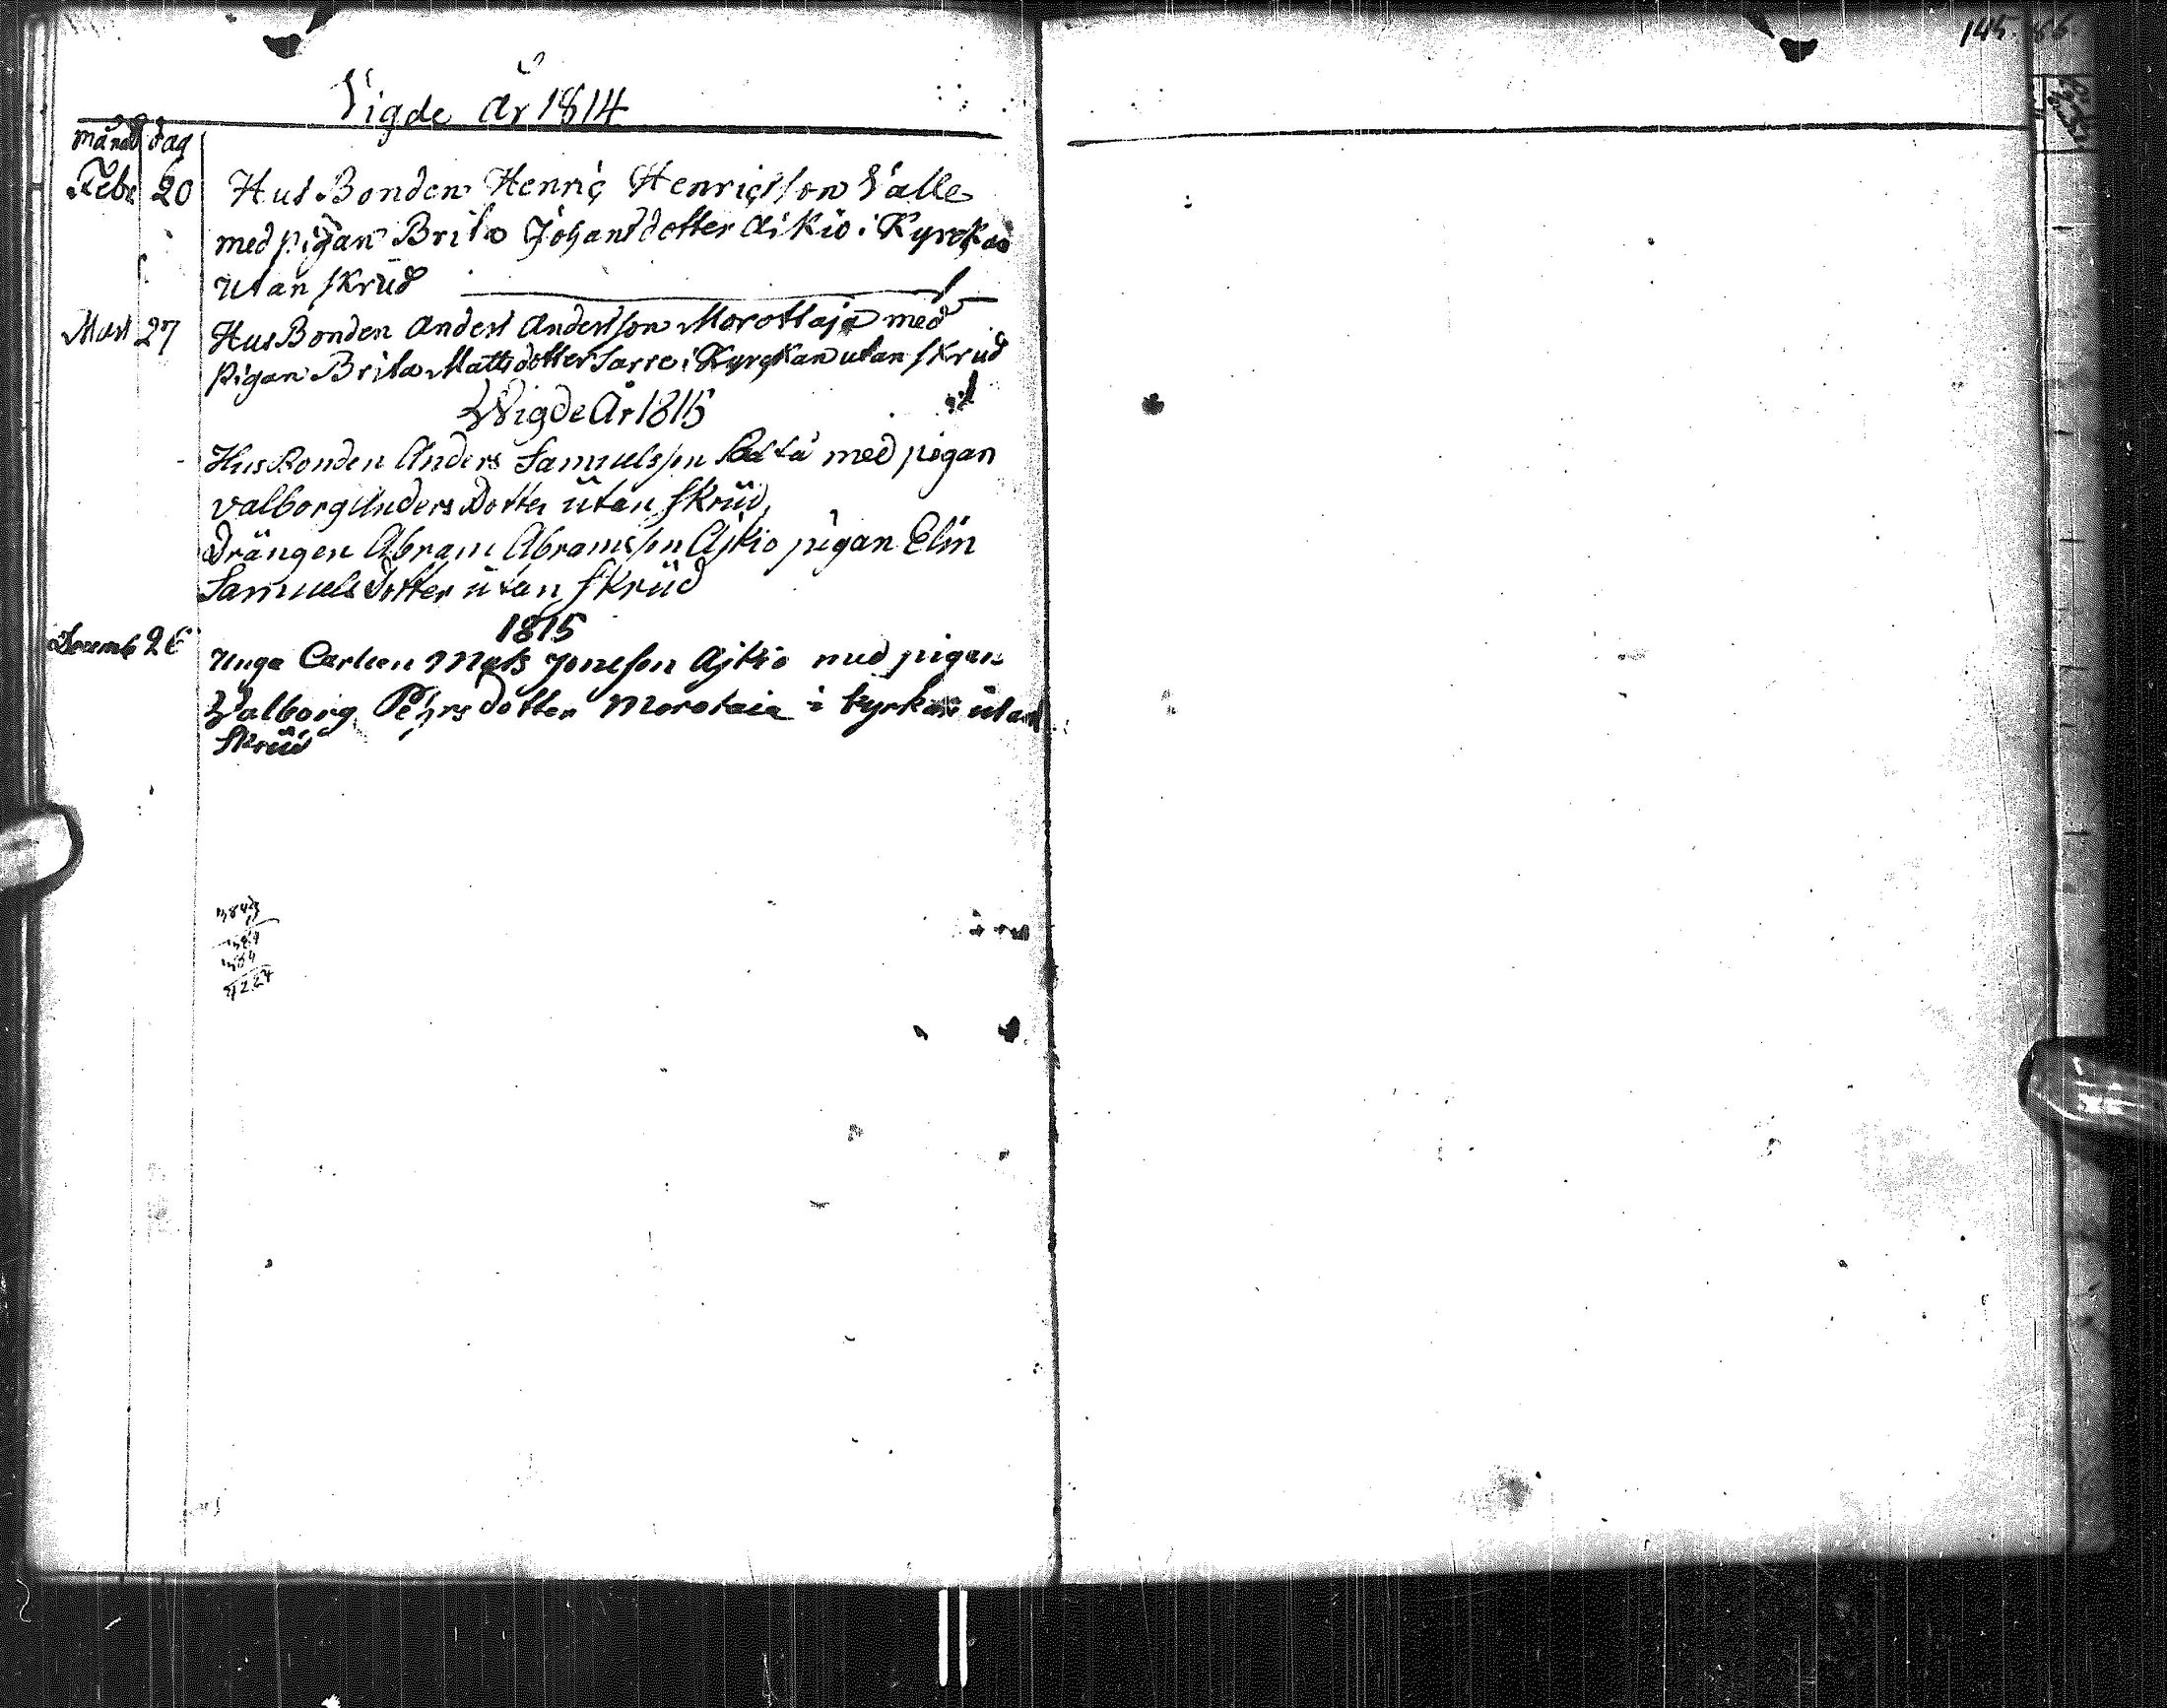 Vigde År 1814
Månad dag
Febr 20 HusBonden Henric Henricsson Valle
med pigan Brita Johansdotter Aikio i Kyrckan
utan skrud
Mart 27 HusBonden Anders Andersson Morottaja med
pigan Brita Mattsdotter Sarre i Kyrckan utan skrud
Wigde År 1815
HusBonden Anders Samuelsson med pigan
Valborg Anders Dotter utan skrud,
Drängen Abram Abramsson Ajkio pigan Elin
Samuels Dotter utan skrud
1815
Decemb 26 Unga Carlen Mats Jonsson Ajkio med pigan
Valborg Pehrs Dotter Morotaia i kyrkan utan
skrud
145.